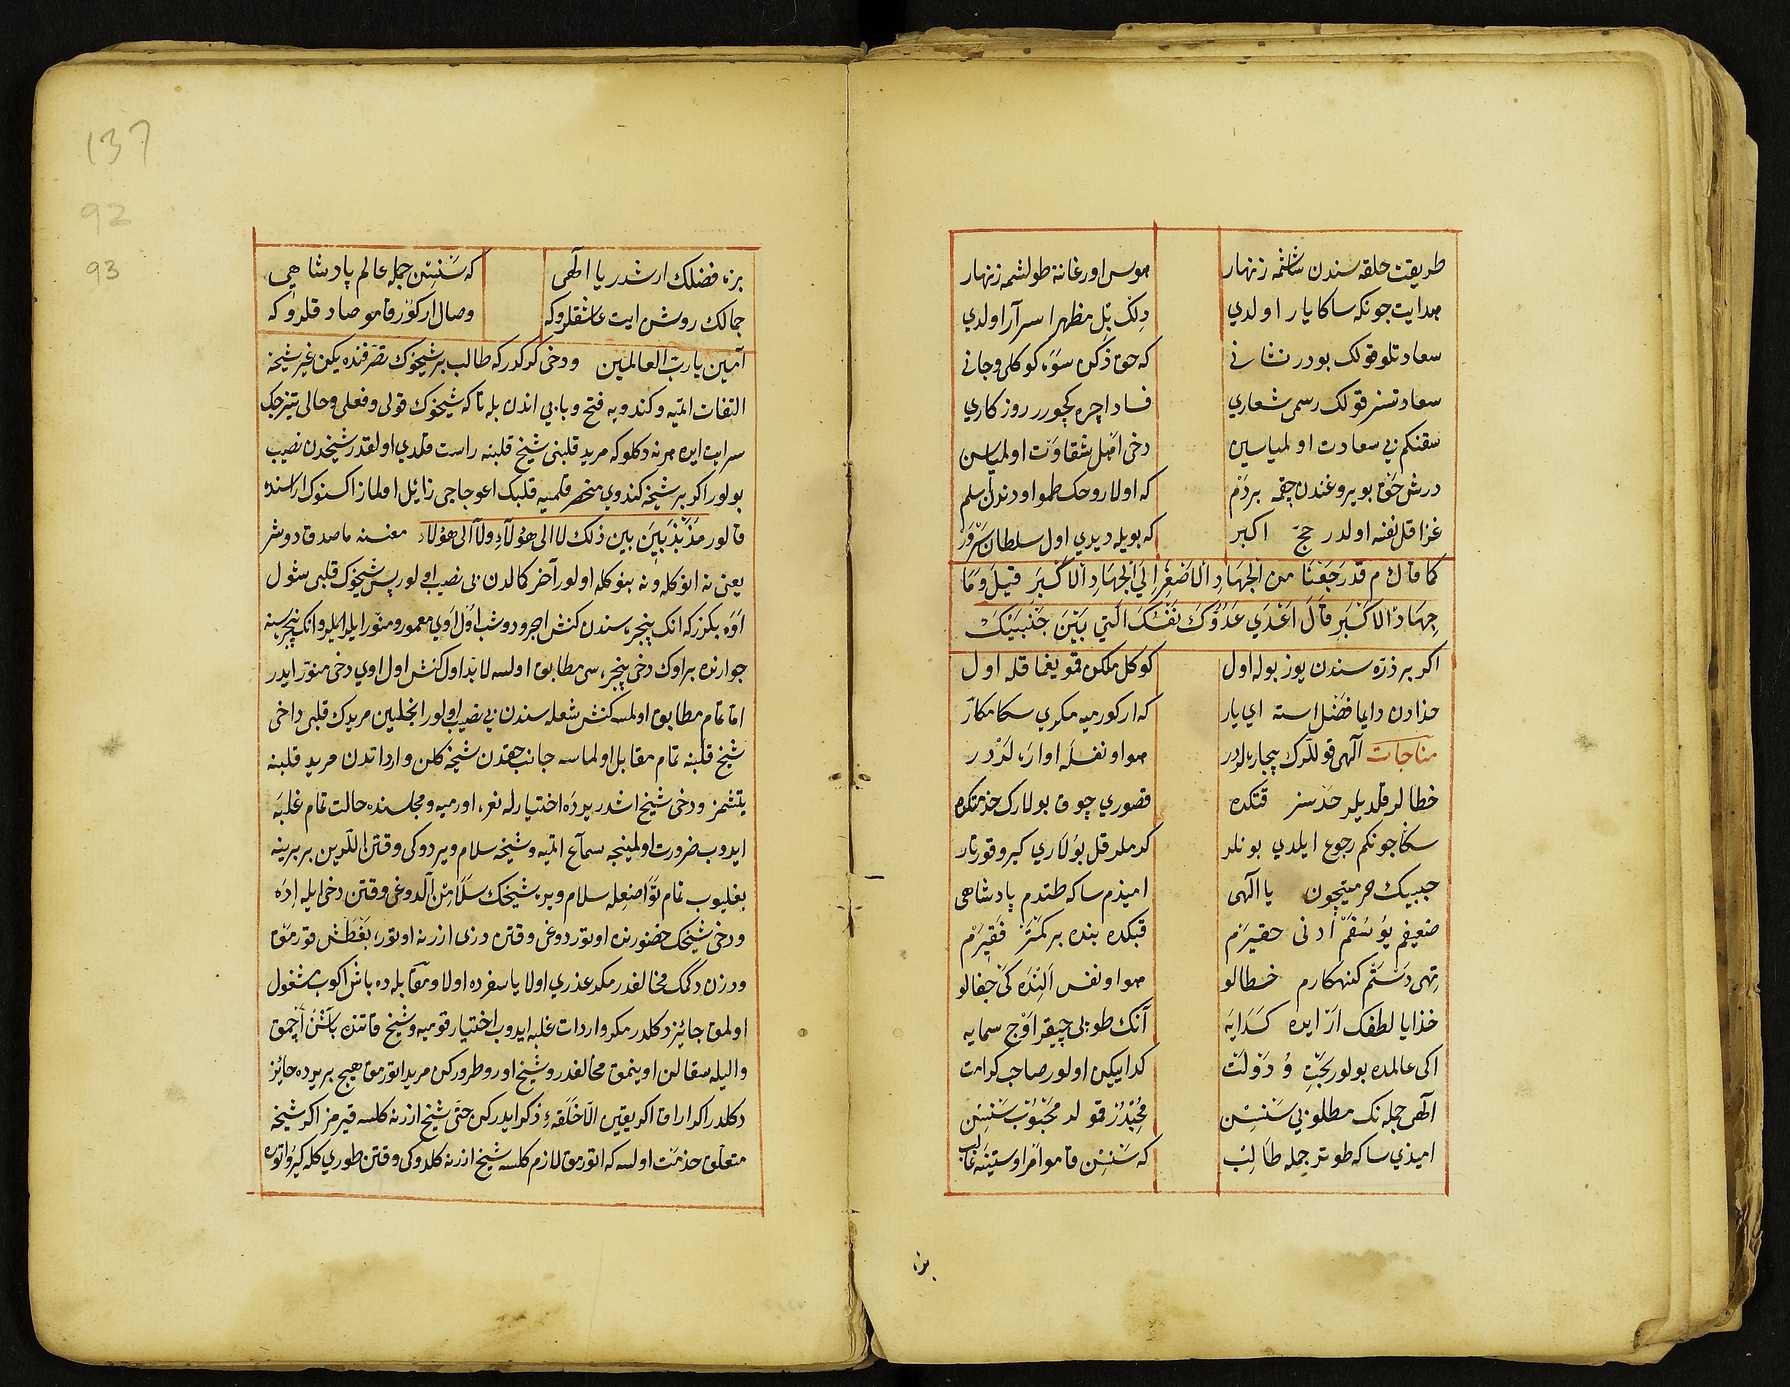 طريقت حلقه سندن شاشمه زنهار هوس اورغاننه طولشمه زنهار
هدايت جونكه ساكا يار اولدي دلك بل مظهر اسرار اولدي
سعادتلو قولك بودر نشانى كه حق ذكرن سوه كوكلى وجانى
سعادتسز قولك رسمى شعاري فساد اچره كچورر روزكاري
سقنكم بي سعادت اولمياسين دخى اهل شقاوت اولمياسن
درش حق بويروغندن چقمه بردم كه اولا روحك طمو اودندن سلم
غزا قل نفسه اولدر حج اكبر كه بويله ديدي اول سلطان سرور
كما قال م قد رجعنا من الجهاد الاصغر الى الجهاد الاكبر قيل وما
جهاد الاكبر قال اعدي عدوك نفسك التي بين جنبيك
اكر بر ذره سندن يوز بوله اول كوكل ملكن قمو يغما قله اول
خدادن دايما فضل استه اي يار كه ار كورميه مكري سكا مكار
مناجات الهى قوللرك بيچاره لردر هوا و نفسله اواره لردر
خطالر قلديلر حدسز قتكده قصوري چوق بولارك خدمتكده
سكا جونكم رجوع ايلدي بونلر كرملر قل بولاري كيرو قورتار
حبيبك حرمتيچون يا الهى اميذم ساكه طتدم پادشاهى
ضعيفم يوسفم ادنى حقيرم قپكده بنده بر كمتر فقيرم
تهى دستم كنهكارم خطالو هوا و نفس النده كى جفالو
خدايا لطفك ار ايره كدايه آنك طوبى چيقر اوج سمايه
اكى عالمده بولور بخت و دولت كدايكن اولور صاحب كرامت
الهى جمله نك مطلوبي سنسن محبلر قمو لر محبوب سنسن
اميذي ساكه طوتر جمله طالب كه سنسن قامو امر اوستينه غالب
بزه
137
92
93
بزه فضلك ارشدر يا الهى كه سنسن جمله عالم پادشاهى
جمالك روشن ايت عاشقلروكه وصال ار كور قامو صادقلروكه
آمين يا رب العالمين ودخى كركدر كه طالب بر شيخوك تصرفنده يكن غير شيخه
التفات ايتميه وكندويه فتح وبابى اندن بله تا كه شيخوك قولى وفعلى وحالى
سرايت ايده هر نه دكلو كه مريد قلبنى شيخ قلبنه راست قلدي اولقدر شيخدن نصيب
بولور اكر بر شيخه كندوي منحصر قلميه قلبك اعوجاجى زائل اولماز اكسنوك اراسنده
قالور مذبذبين بين ذلك لا الى هؤلاء ولا الى هؤلاء معنسنه ماصدق دوشر
يعنى نه انوكله ونه بنوكله اولور آخر كالدن بى نصيب اولور پس شيخوك قلبى شول
اوه بكزر كه انك پنجره سندن كنش اچرو دوشب اول اوي معمور ومنور ايلر
جوارنده بر اوك دخى پنجره سى مطابق اولسه لابد اول كنش اول اوي دخى منور ايدر
اما تمام مطابق اولمسه كنش شعله سندن بى نصيب اولور انجلين مريدك قلبى داخى
شيخ قلبنه تمام مقابل اولماسه جانب حقدن شيخه كلن وارداتدن مريد قلبنه
يتشمز ودخى شيخ اشدر يرده اختيارله نعره اورميه ومجلسنده حالت تمام غلبه
ايدوب ضرورت اولمينجه سماع ايتميه وشيخه سلام ويردوكى وقتن اللرين بربرينه
بغليوب تمام تواضعله سلام ويره شيخك سلامن آلدوغى وقتن دخى ايله ايده
ودخى شيخك حضورنده اوتوردوغى وقتن دزى ازرنه اوتوره
ودزن دكمك مخالفدر مكر عذري اولا يا سفرده اولا ومقابله ده باش اكوب مشغول
اولمق جائيز دكلدر مكر واردات غلبه ايدوب اختيار قوميه وشيخ قاتنده باشن اچمق
واليله سقالن اوينمق مخالفدر وشيخ اورو طروركن مريد اتورمق هيچ بر يرده جايز
دكلدر اكر ايراق اكر يقين الا حلقهء ذكر ايدركن حتى شيخ ازرنه كلسه قيرمز اكر شيخه
متعلق خدمت اولسه كه اتورمق لازم كلسه شيخ ازرنه كلدوكى وقتن طوري كله كيرو اتوره